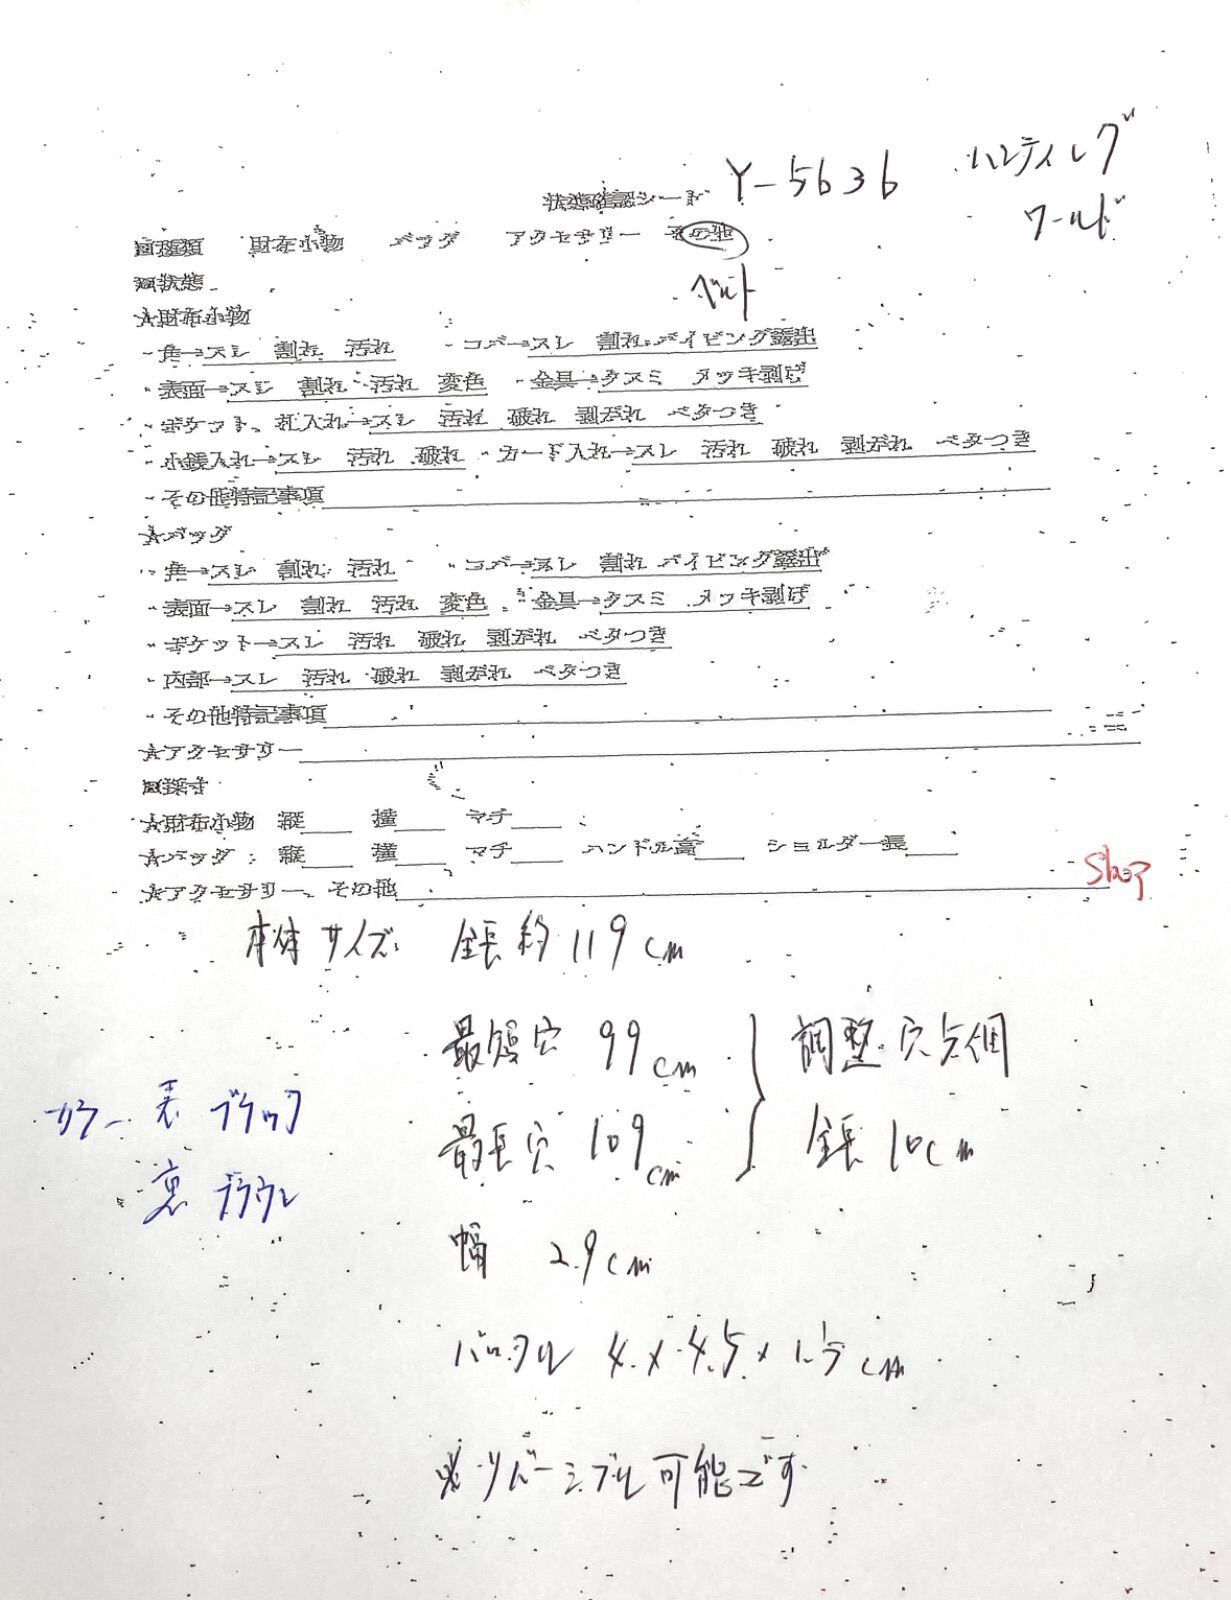 Y-5636 ハンティング
ワールド
状態確認シート
■種類 財布小物 バッグ アクセサリー その他
ベルト
■状態
★財布小物
・角→スレ 割れ 汚れ ・コバ→スレ 割れ パイピング露出
・表面→スレ 割れ 汚れ 変色 ・金具→クスミ メッキ剥げ
・ポケット、札入れ→スレ 汚れ 破れ 剥がれ ベタつき
・小銭入れ→スレ 汚れ 破れ ・カード入れ→スレ 汚れ 破れ 剥がれ ベタつき
・その他特記事項
★バッグ
・角→スレ 割れ 汚れ ・コバ→スレ 割れ パイピング露出
・表面→スレ 割れ 汚れ 変色 ・金具→クスミ メッキ剥げ
・ポケット→スレ 汚れ 破れ 剥がれ ベタつき
・内部→スレ 汚れ 破れ 剥がれ ベタつき
・その他特記事項
★アクセサリー
■採寸
★財布小物 縦 横 マチ
★バッグ 縦 横 マチ ハンドル高 ショルダー長
★アクセサリー、その他
本体サイズ: 全長約119cm
最短穴 99cm
調整穴5個
最長穴 109cm
全長10cm
カラー 表 ブラック
裏 ブラウン
幅 2.9cm
バックル 4×4.5×1.5cm
※リバーシブル可能です